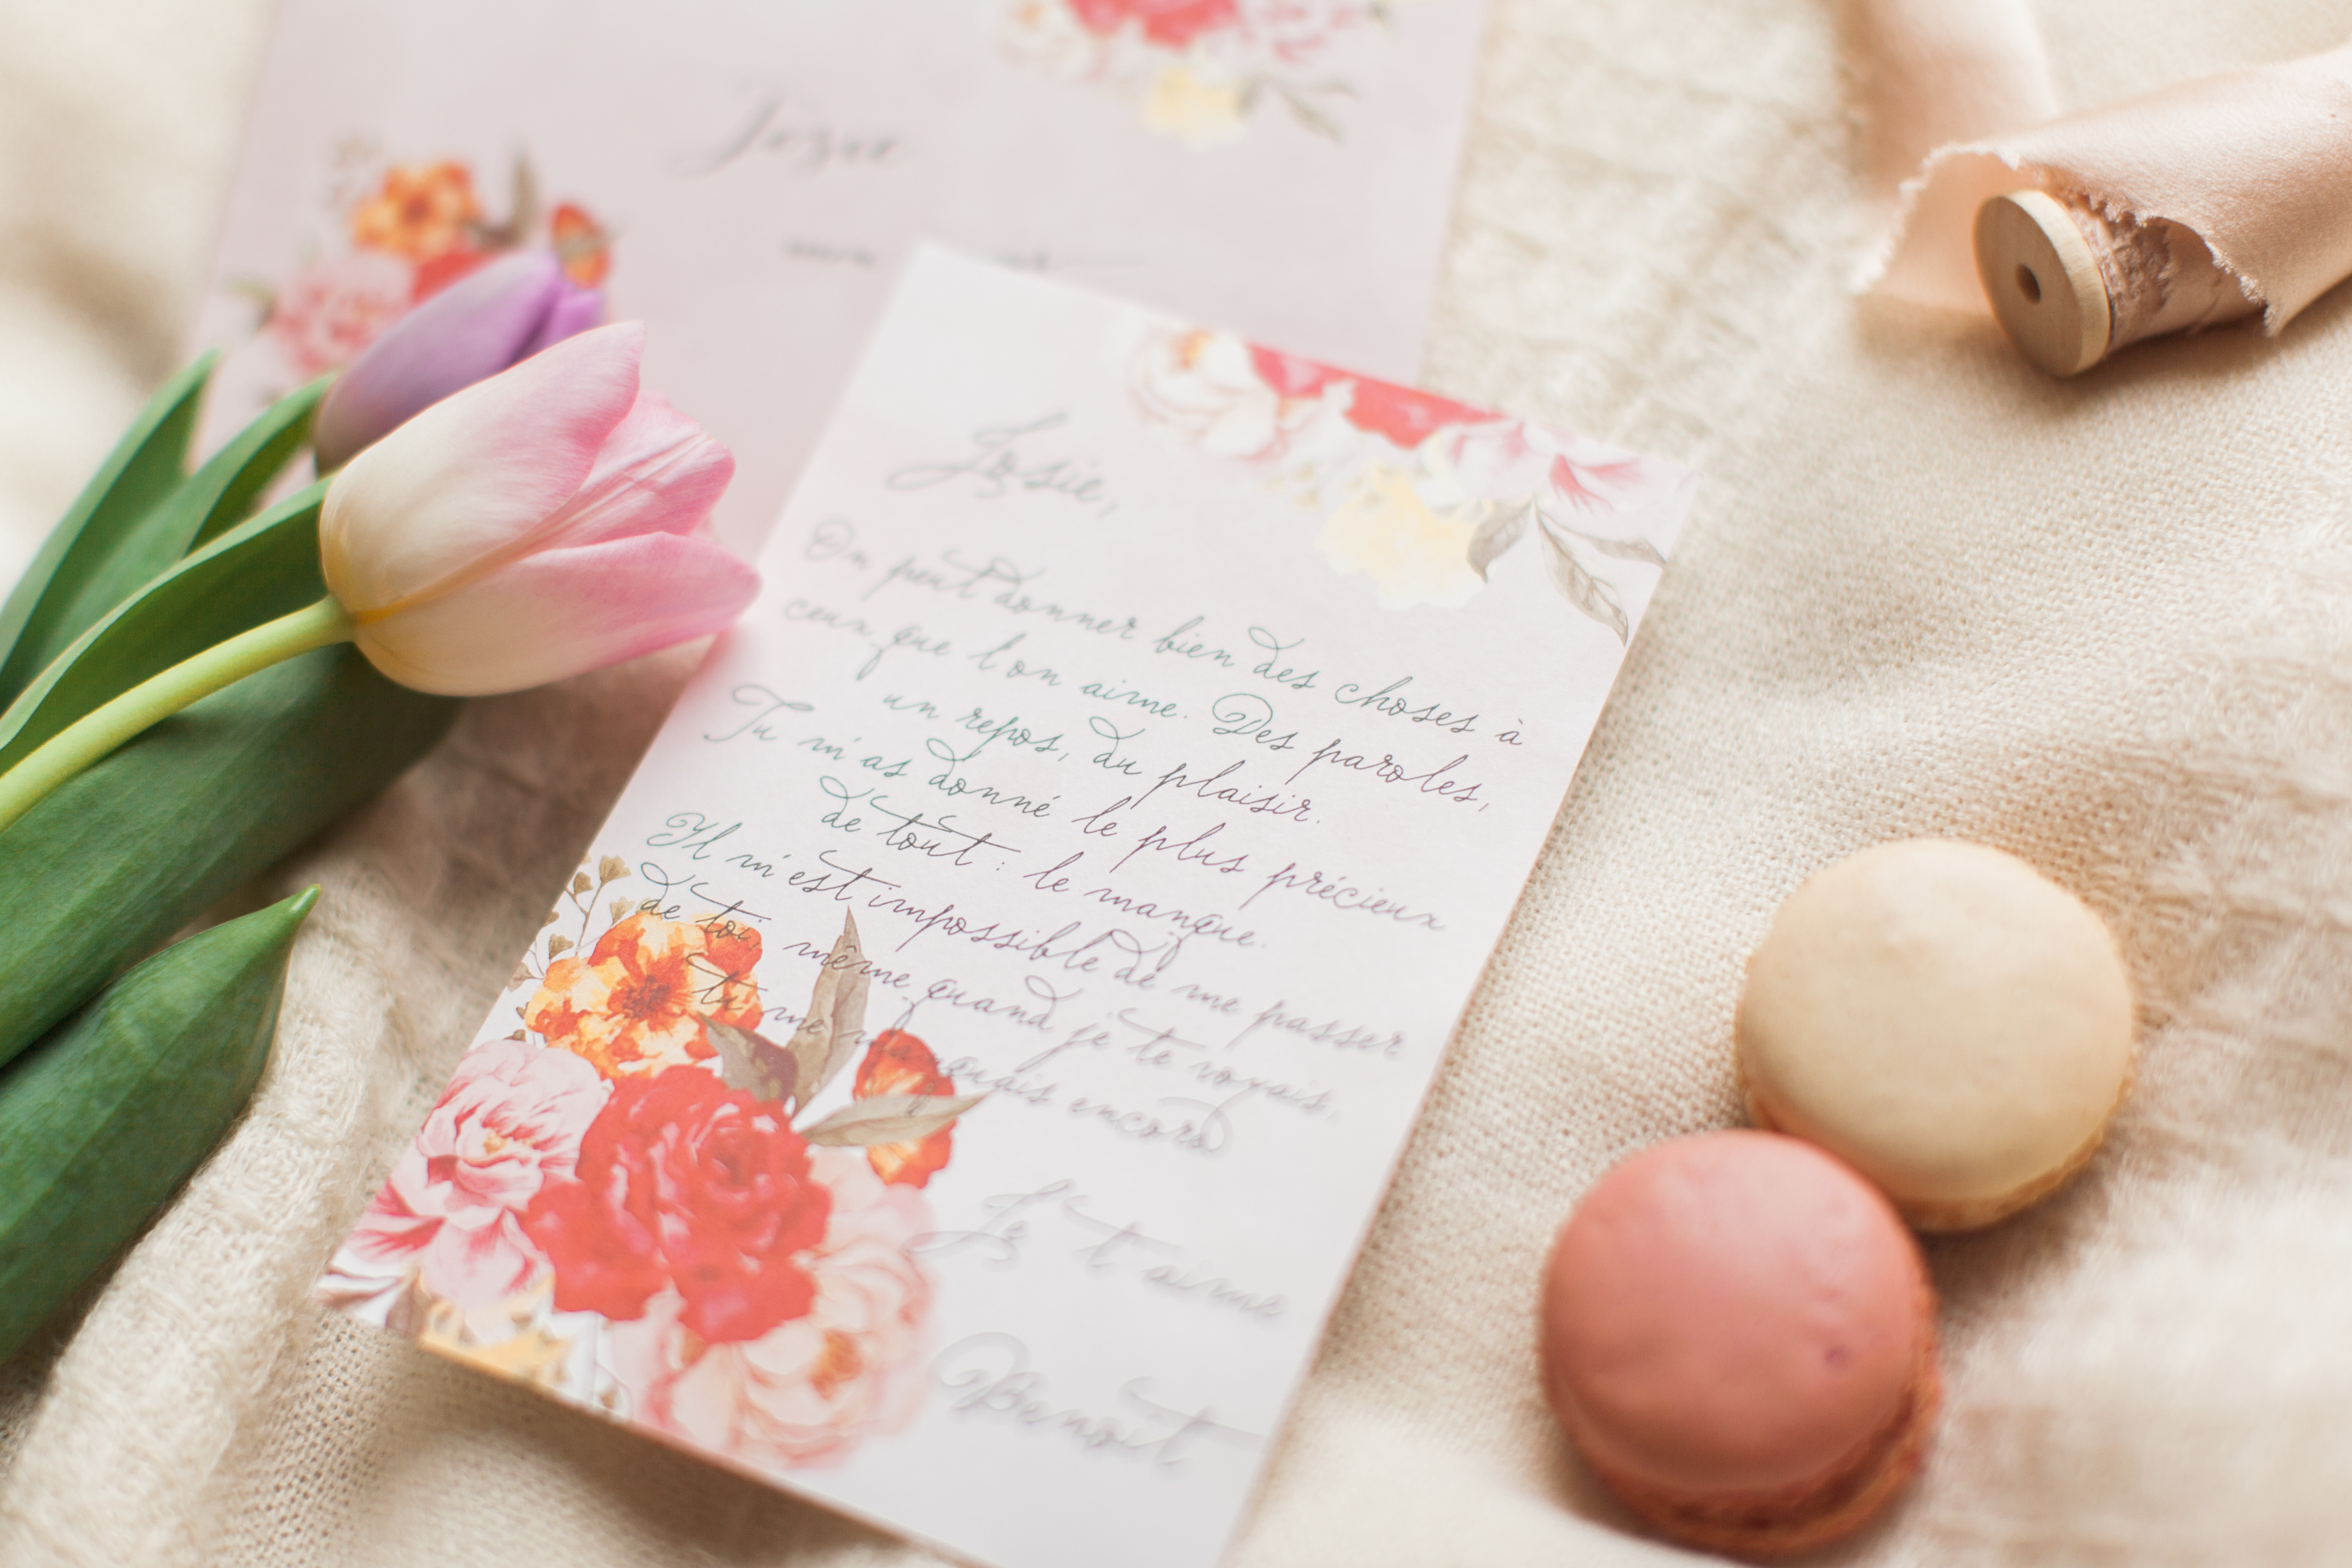 Josie
Josie,
On peut donner bien des choses à
ceux que l'on aime. Des paroles,
un repos, du plaisir.
Tu m'as donné le plus précieux
de tout : le manque.
Il m'est impossible de me passer
de toi, même quand je te voyais,
tu me manquais encore
Je t'aime
Benoît